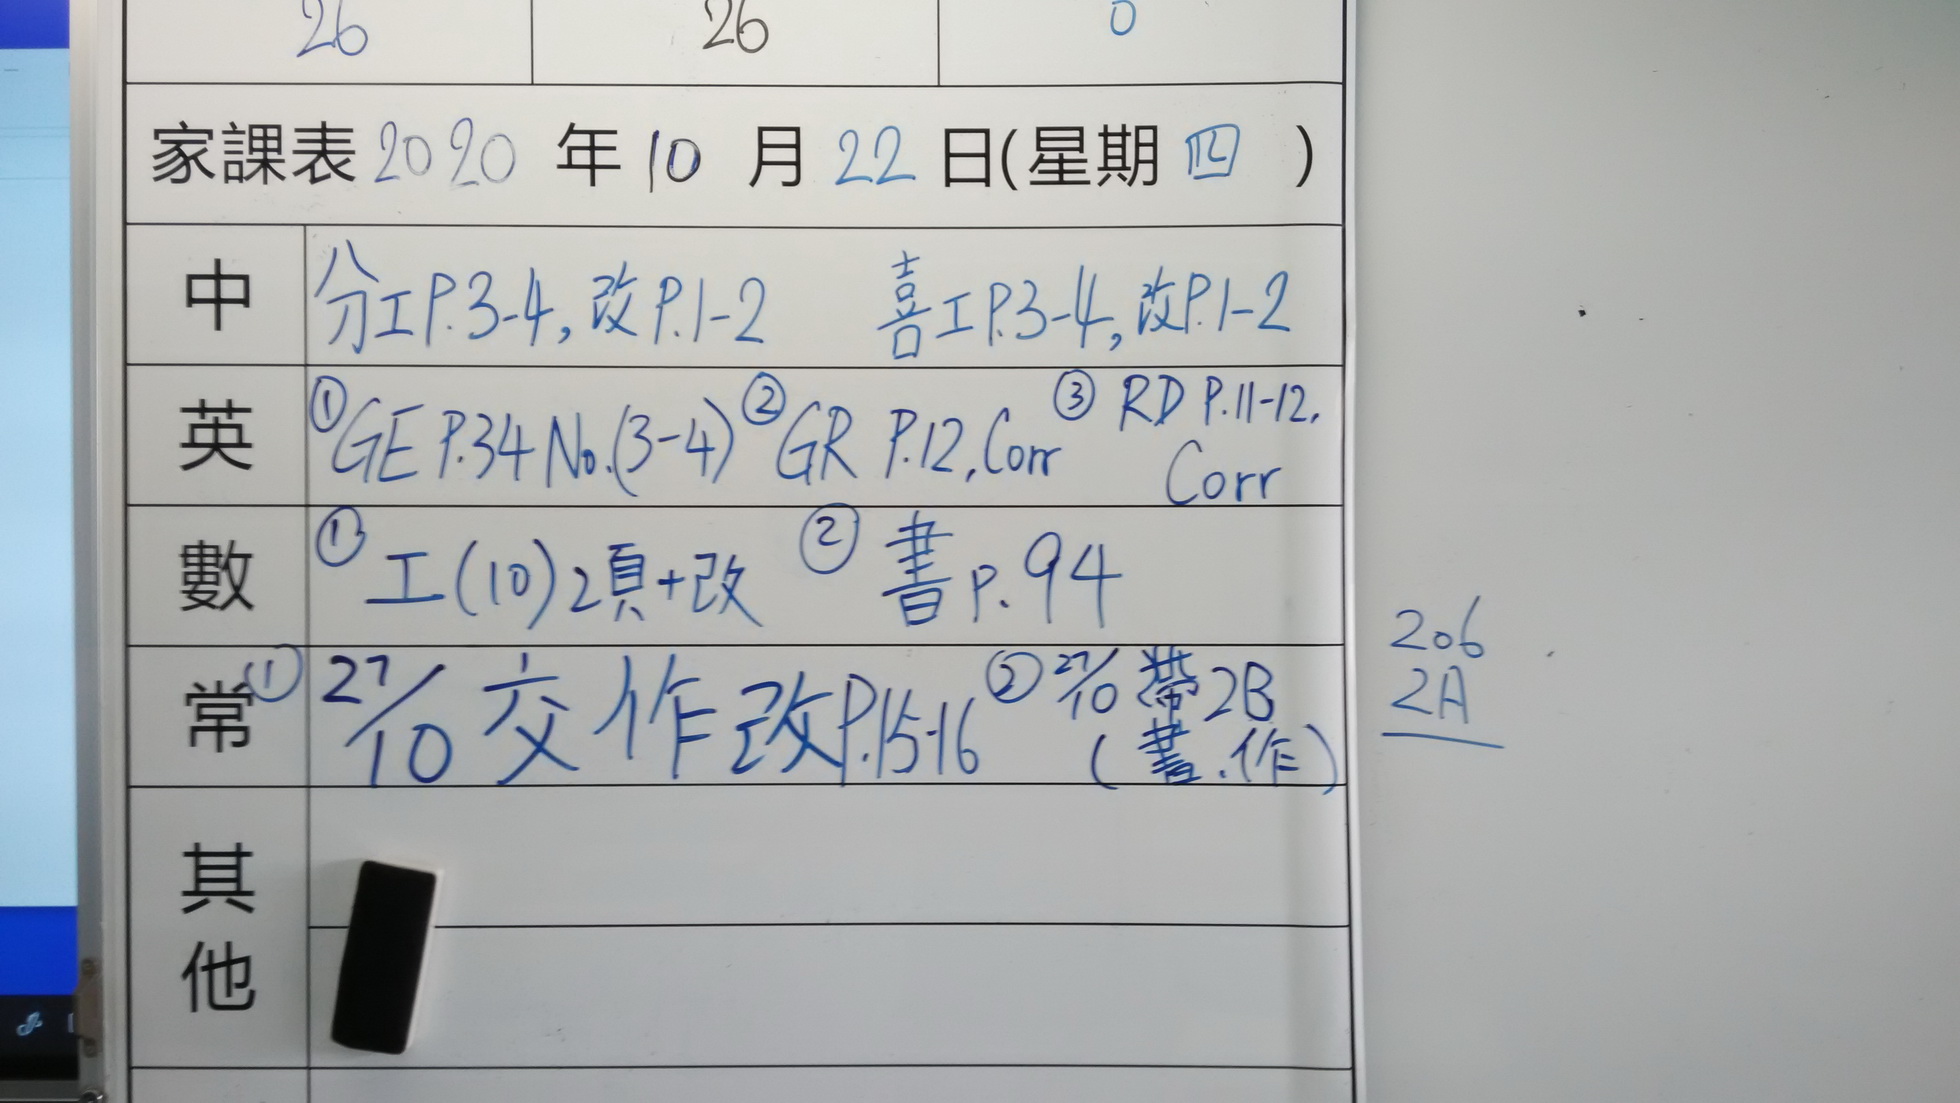 26 26 0
家課表 2020 年 10 月 22 日(星期 四 )
中 分工P.3-4,改P.1-2 喜工P.3-4,改P.1-2
英 ①GE P.34 No.(3-4) ②GR P.12,Corr ③ RD P.11-12,
Corr
數 ①工(10)2頁+改 ②書p.94
常 ①27/10交作改P.15-16 ②27/10帶2B
(書.作)
206
2A
其
他